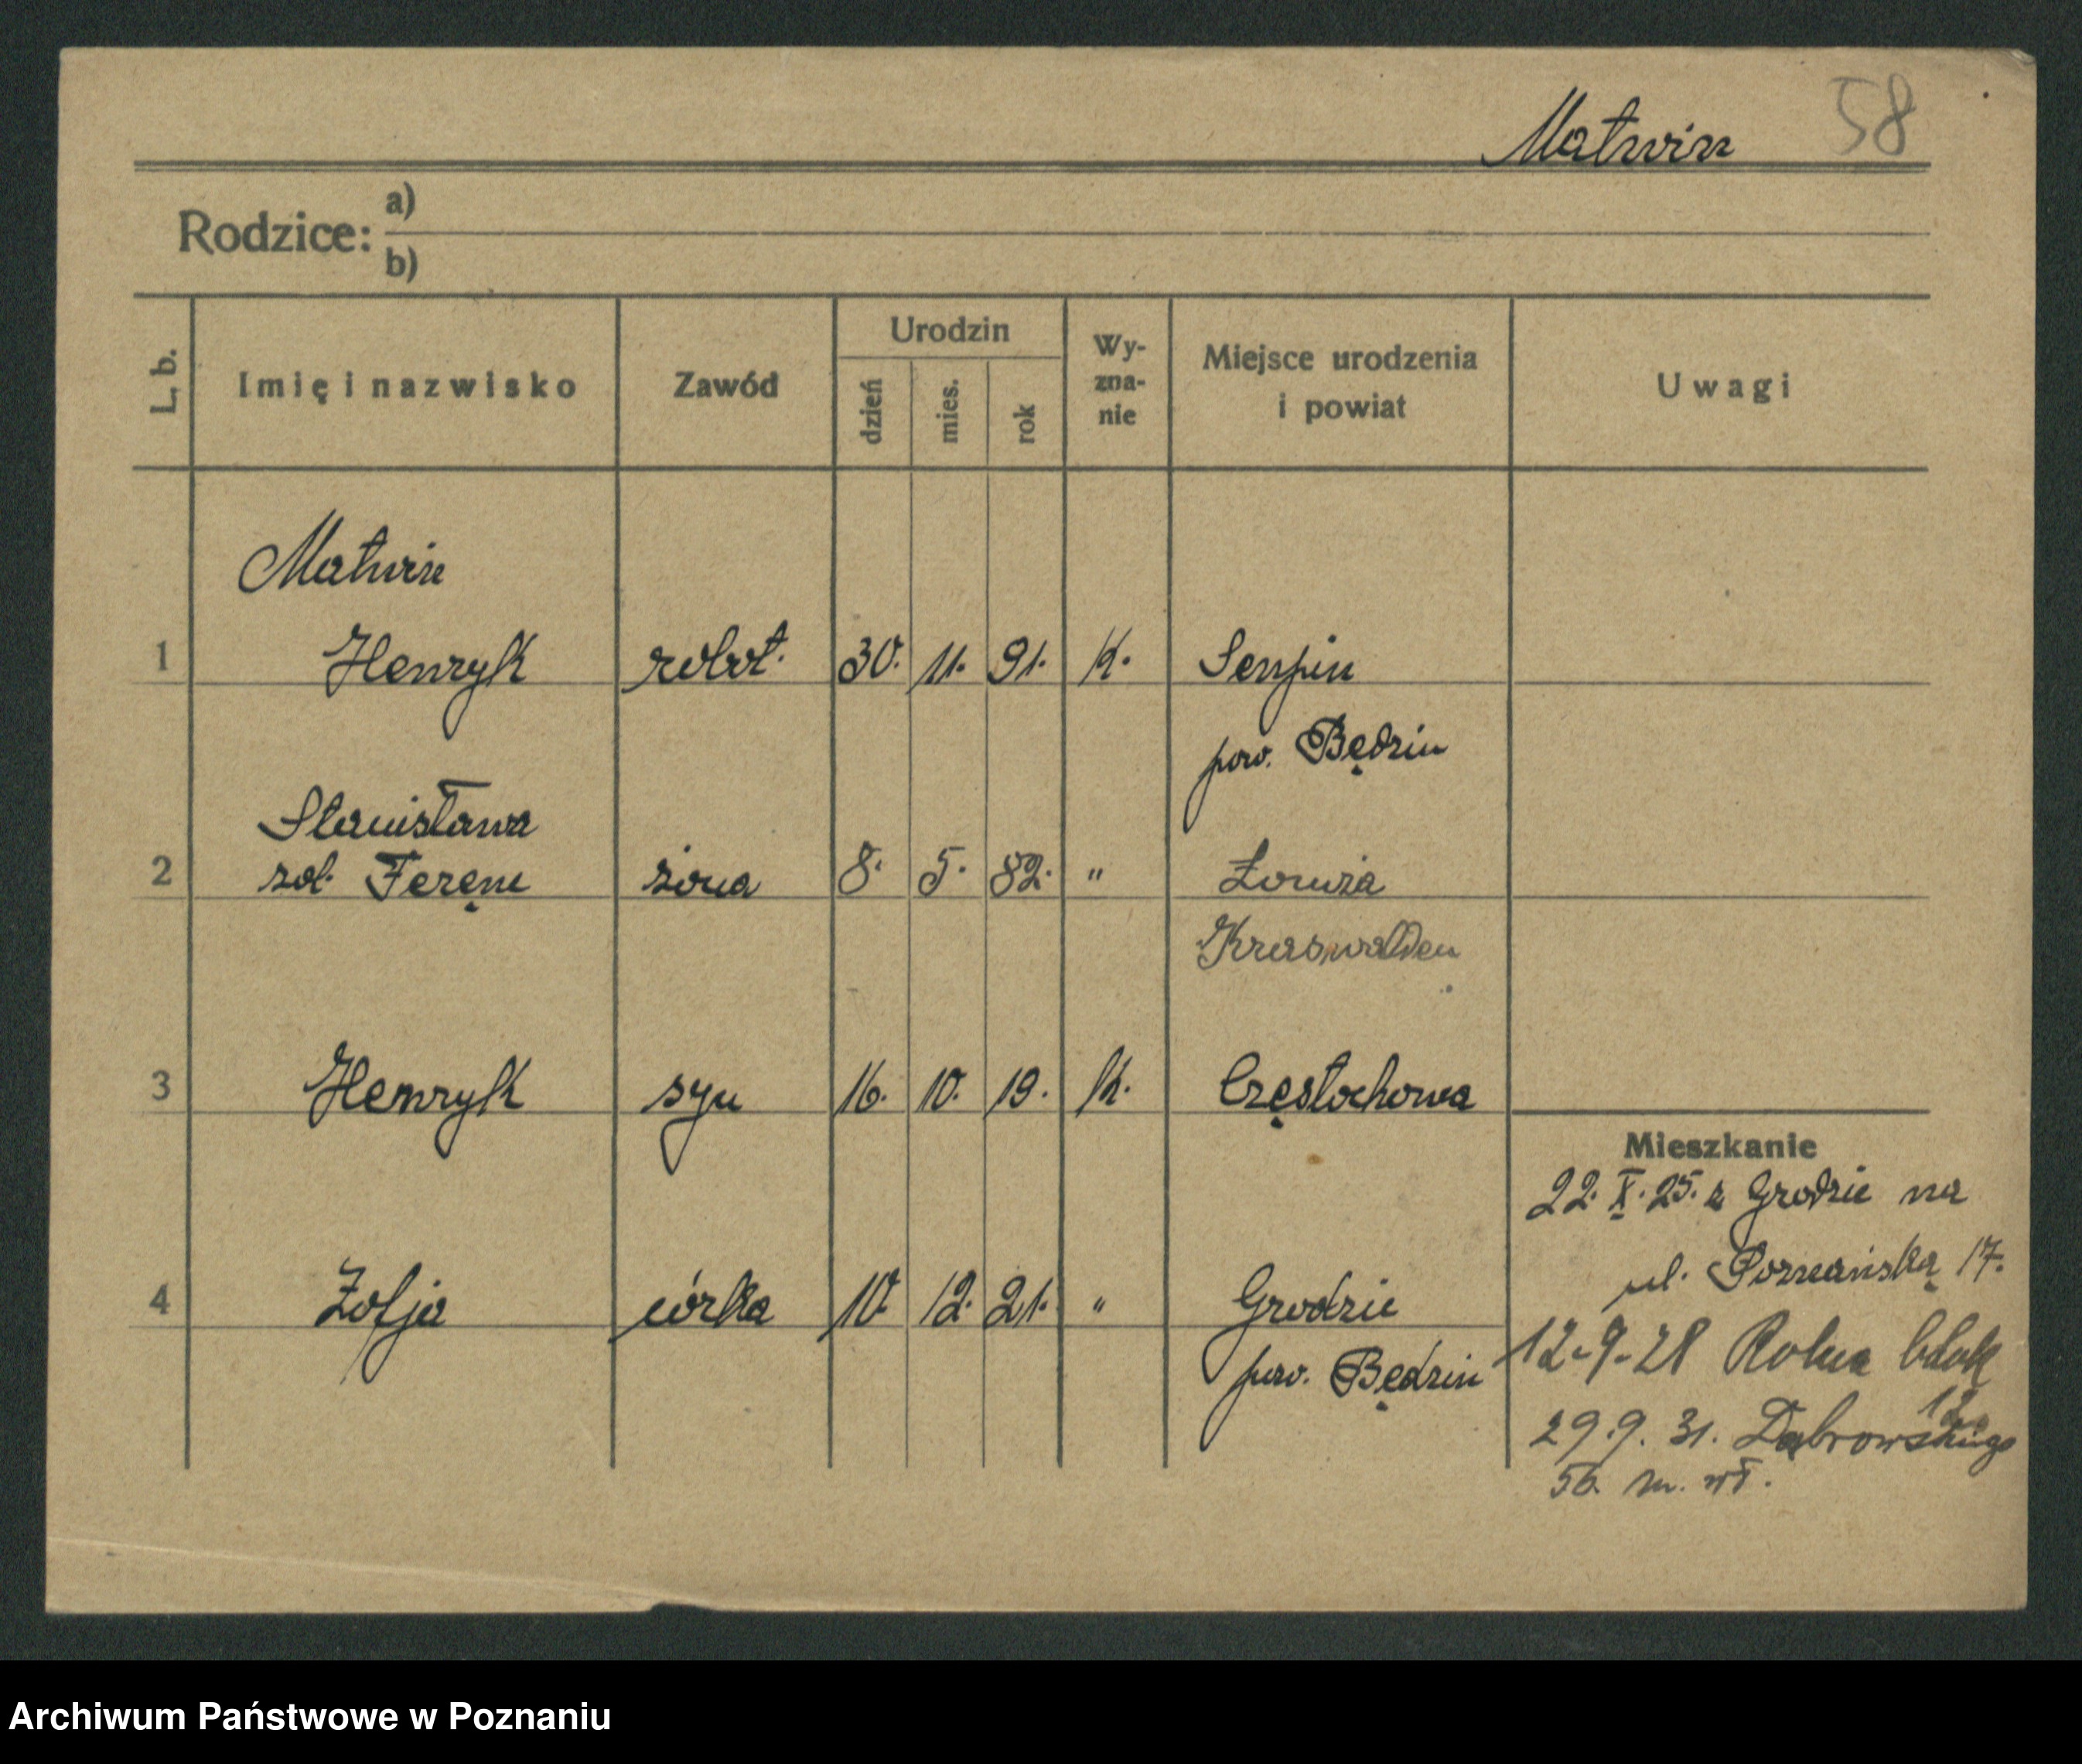 Matwin 58
Rodzice: a)
b)
L. b. Imię i nazwisko Zawód Urodzin dzień mies. rok Wy-zna-nie Miejsce urodzenia i powiat Uwagi
Matwin
1 Henryk robot. 30. 11. 91. K.
pow. Będzin
Stanisława
2 Feręnc żona 8. 5. 82. " Łomża
3 Henryk syn 16. 10. 19. K. Częstochowa
Mieszkanie
22. X. 25. z Grodzic na
ul. Poznańską 17.
4 Zofja córka 10. 12. 21. " Grodzic
pow. Będzin
12-9-28 Rolna blok
12
29.9. 31. Dąbrowskiego
56. m. wł.
Archiwum Państwowe w Poznaniu